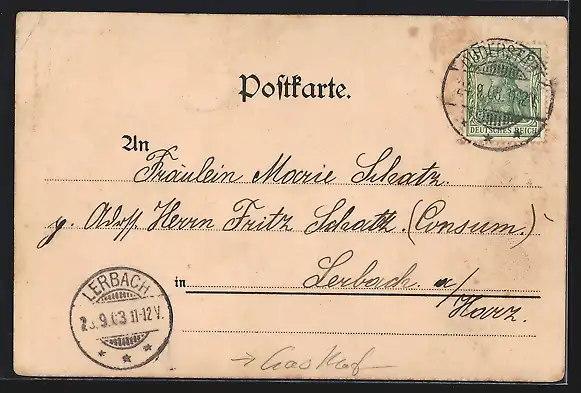 Postkarte.
DUDERSTADT
DEUTSCHES REICH
An
Fräulein Marie Schatz.
Herrn Fritz Schatz. (Consum.)
Lerbach a/
Harz.
in
LERBACH
9.03 11-12 V.